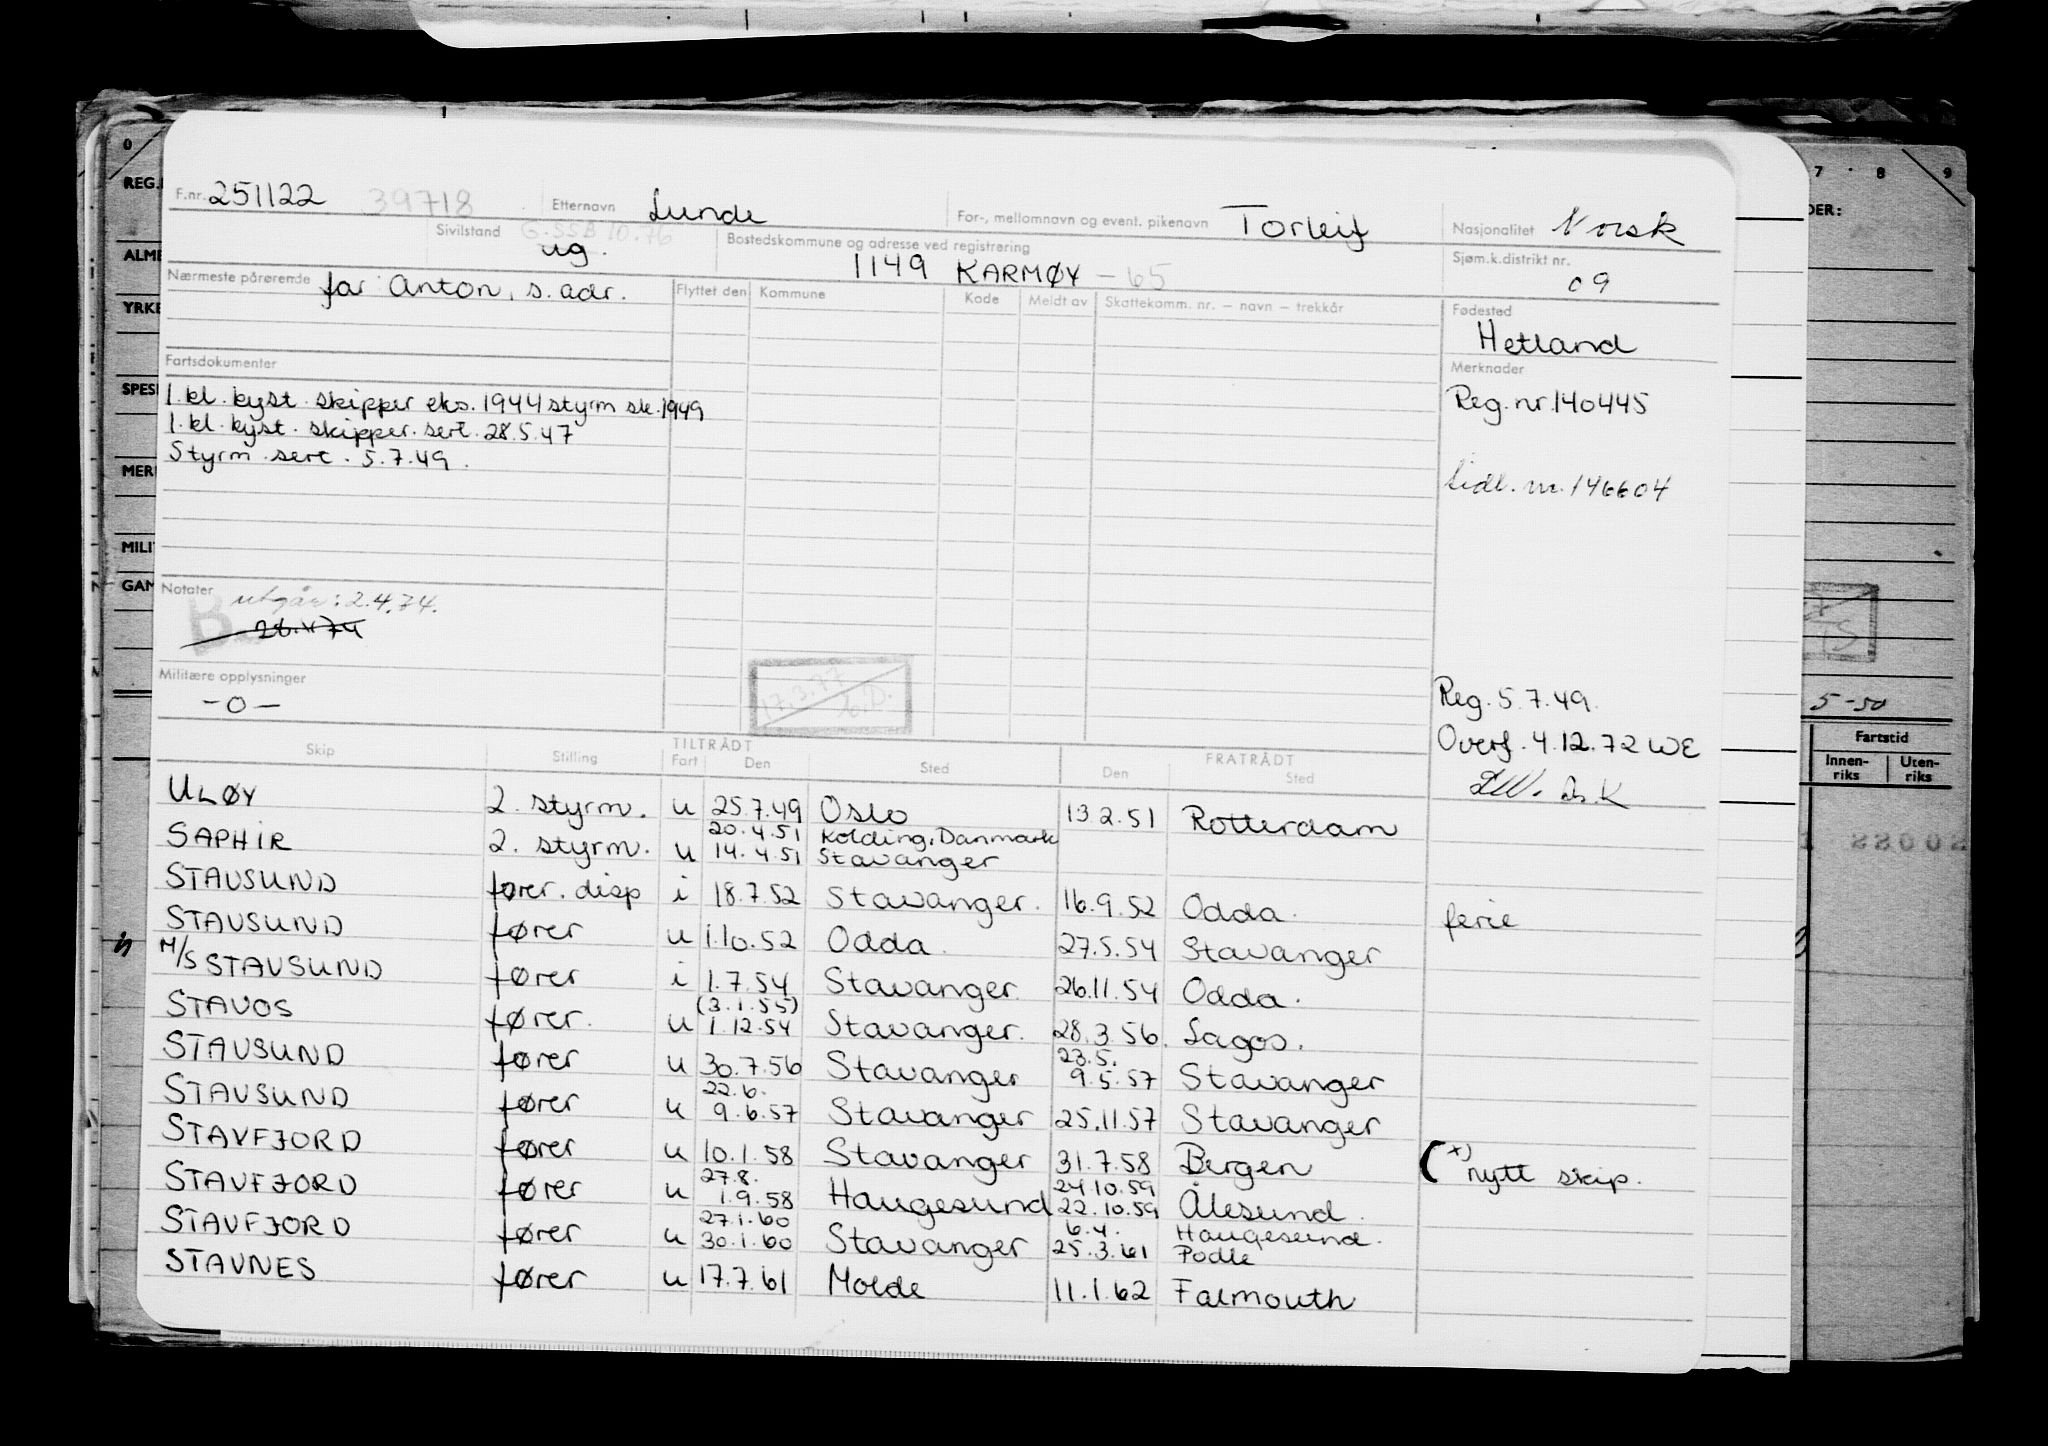 F.nr. 251122 39718 Etternavn Lunde For-, mellomnavn og event. pikenavn Torleif Nasjonalitet Norsk
Sivilstand ug. Bostedskommune og adresse ved registrering 1149 KARMØY - 65 Sjøm.k.distrikt nr. 09
Nærmeste pårørende far Anton, s. adr. Flyttet den Kommune Kode Meldt av Skattekomm. nr. – navn – trekkår Fødested
Hetland
Fartsdokumenter Merknader
1. kl. kyst. skipper eks. 1944 styrm sk. 1949 Reg. nr. 140445
1. kl. kyst. skipper. sert. 28.5.47
Styrm. sert. 5.7.49. nr. 146604
Notater utgår: 2.4.74.
Militære opplysninger 17.3.77
-0- Reg. 5.7.49.
Overf. 4.12.72 WE
Skip Stilling TILTRÅDT Fart Den Sted FRATRÅDT Den Sted
ULØY 2. styrm. u 25.7.49 Oslo 13.2.51 Rotterdam
20.4.51 Kolding, Danmark
SAPHIR 2. styrm. u 14.4.51 Stavanger
STAVSUND fører. disp i 18.7.52 Stavanger. 16.9.52 Odda. ferie
STAVSUND fører u 1.10.52 Odda. 27.5.54 Stavanger
M/S STAVSUND fører i 1.7.54 Stavanger. 26.11.54 Odda.
(3.1.55)
STAVOS fører. u 1.12.54 Stavanger. 28.3.56. Lagos.
23.5.
STAVSUND fører u 30.7.56 Stavanger 9.5.57 Stavanger
22.6.
STAVSUND fører u 9.6.57 Stavanger 25.11.57 Stavanger
STAVFJORD fører u 10.1.58 Stavanger 31.7.58 Bergen (x) nytt skip.
27.8. 24.10.59
STAVFJORD fører u 1.9.58 Haugesund 22.10.59 Ålesund.
27.1.60 6.4. Haugesund.
STAVFJORD fører u 30.1.60 Stavanger 25.3.61 Podle
STAVNES fører u 17.7.61 Molde 11.1.62 Falmouth
0
REG.
ALME
YRKE
SPES
MER
MILI
GAM
7 8 9
DER:
5-50
Fartstid
Innen-riks Uten-riks